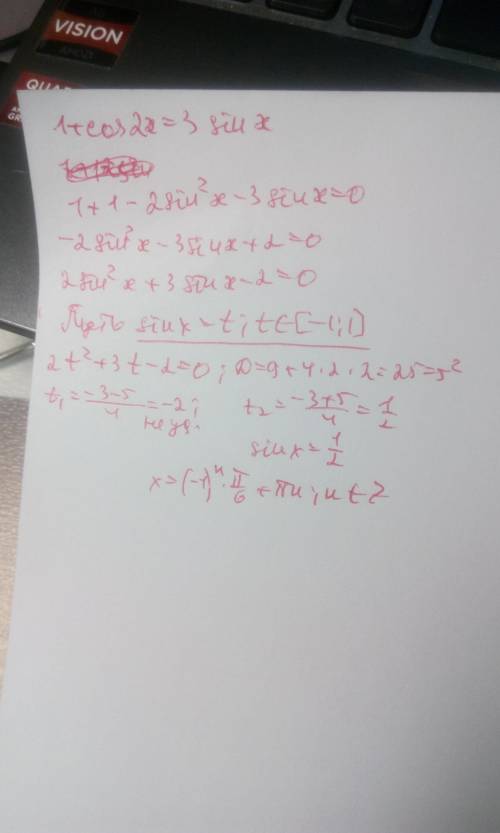 VISION
AMD
1+cos2x=3 sin x
1+1-2sin²x-3sinx=0
-2sin²x-3sinx+2=0
2sin²x+3sinx-2=0
Пусть sinx=t; t∈[-1;1]
2t²+3t-2=0; D=9+4·2·2=25=5²
t₁=\frac{-3-5}{4}=-2; t₂=\frac{-3+5}{4}=\frac{1}{2}
не уд.
sinx=\frac{1}{2}
x=(-1)ⁿ·\frac{π}{6}+πn; n∈Z